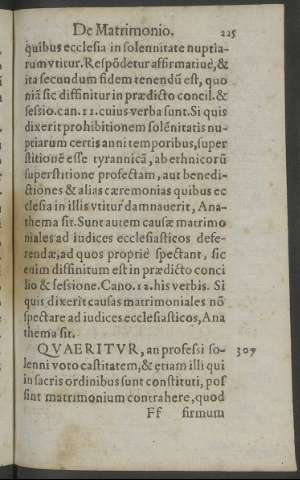 De Matrimonio. 225
quibus ecclesia in solennitate nuptia-
rum vtitur. Respõdetur affirmatiuè, &
ita secundum fidem tenendũ est, quo
niã sic diffinitur in prædicto concil. &
sessio. can. 11. cuius verba sunt. Si quis
dixerit prohibitionem solẽnitatis nu-
ptiarum certis anni temporibus, super
stitionẽ esse tyrannicã, ab ethnicorũ
superstitione profectam, aut benedi-
ctiones & alias cæremonias quibus ec
clesia in illis vtitur damnauerit, Ana-
thema sit. Sunt autem causæ matrimo
niales ad iudices ecclesiasticos defe-
rendæ, ad quos propriè spectant, sic
enim diffinitum est in prædicto conci
lio & sessione. Cano. 12. his verbis. Si
quis dixerit causas matrimoniales nõ
spectare ad iudices ecclesiasticos, Ana
thema sit.
QVAERITVR, an professi so- 307
lenni voto castitatem, & etiam illi qui
in sacris ordinibus sunt constituti, pos
sint matrimonium contrahere, quod
Ff firmum